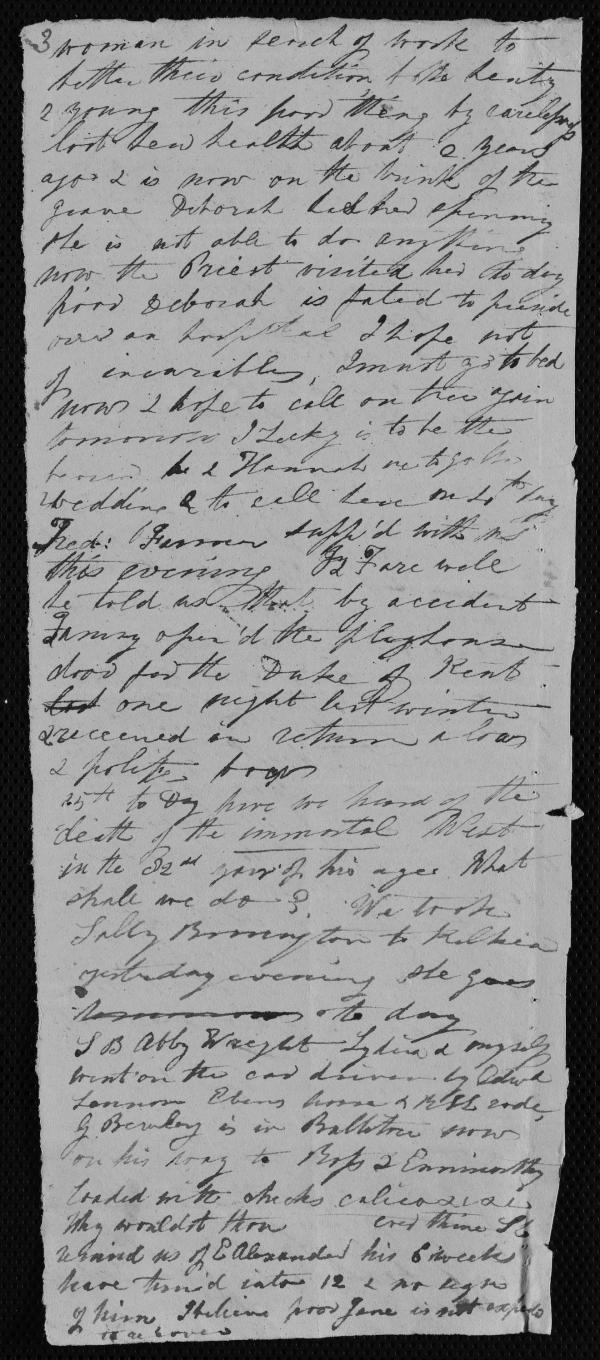 3 woman in serch of work to
better their condition both healty
& young this poor thing by carelessness
lost her health about 2 years
ago & is now on the brink of the
grave Deborah had her spinning
she is not able to do anything
now the Priest visited her to day
poor Deborah is fated to preside
over an hospital I hope not
of incurables, I must go to bed
now & hope to call on thee again
tomorrow J Lecky is to be the
he & Hannah are to go
wedding & to call here on
Fred: Farmer supp'd with us
this evening Fare well
he told us that by accident
Fanny open'd the playhouse
door for the Duke of Kent
one night last winter
& received in return a low
& polite bow
25th to Day have we heard of the
death of the immortal West
in the 82nd year of his age What
shall we do ? We took
Sally Bonnington to Kilkea
yesterday evening she goes
tomorrow to day
S B Abby Wright Lydia & myself
went on the car driven by Edwd
Lennon Ebens horse & rode,
G Bewley is in Ballitore now
on his way to Ross & Enniscorthy
loaded with checks calico &c &c
Why wouldst thou ever thine
remind us of E Alexander his 6 weeks
have turn'd into 12 & no sign
of him I believe poor Jane is not expected
to recover